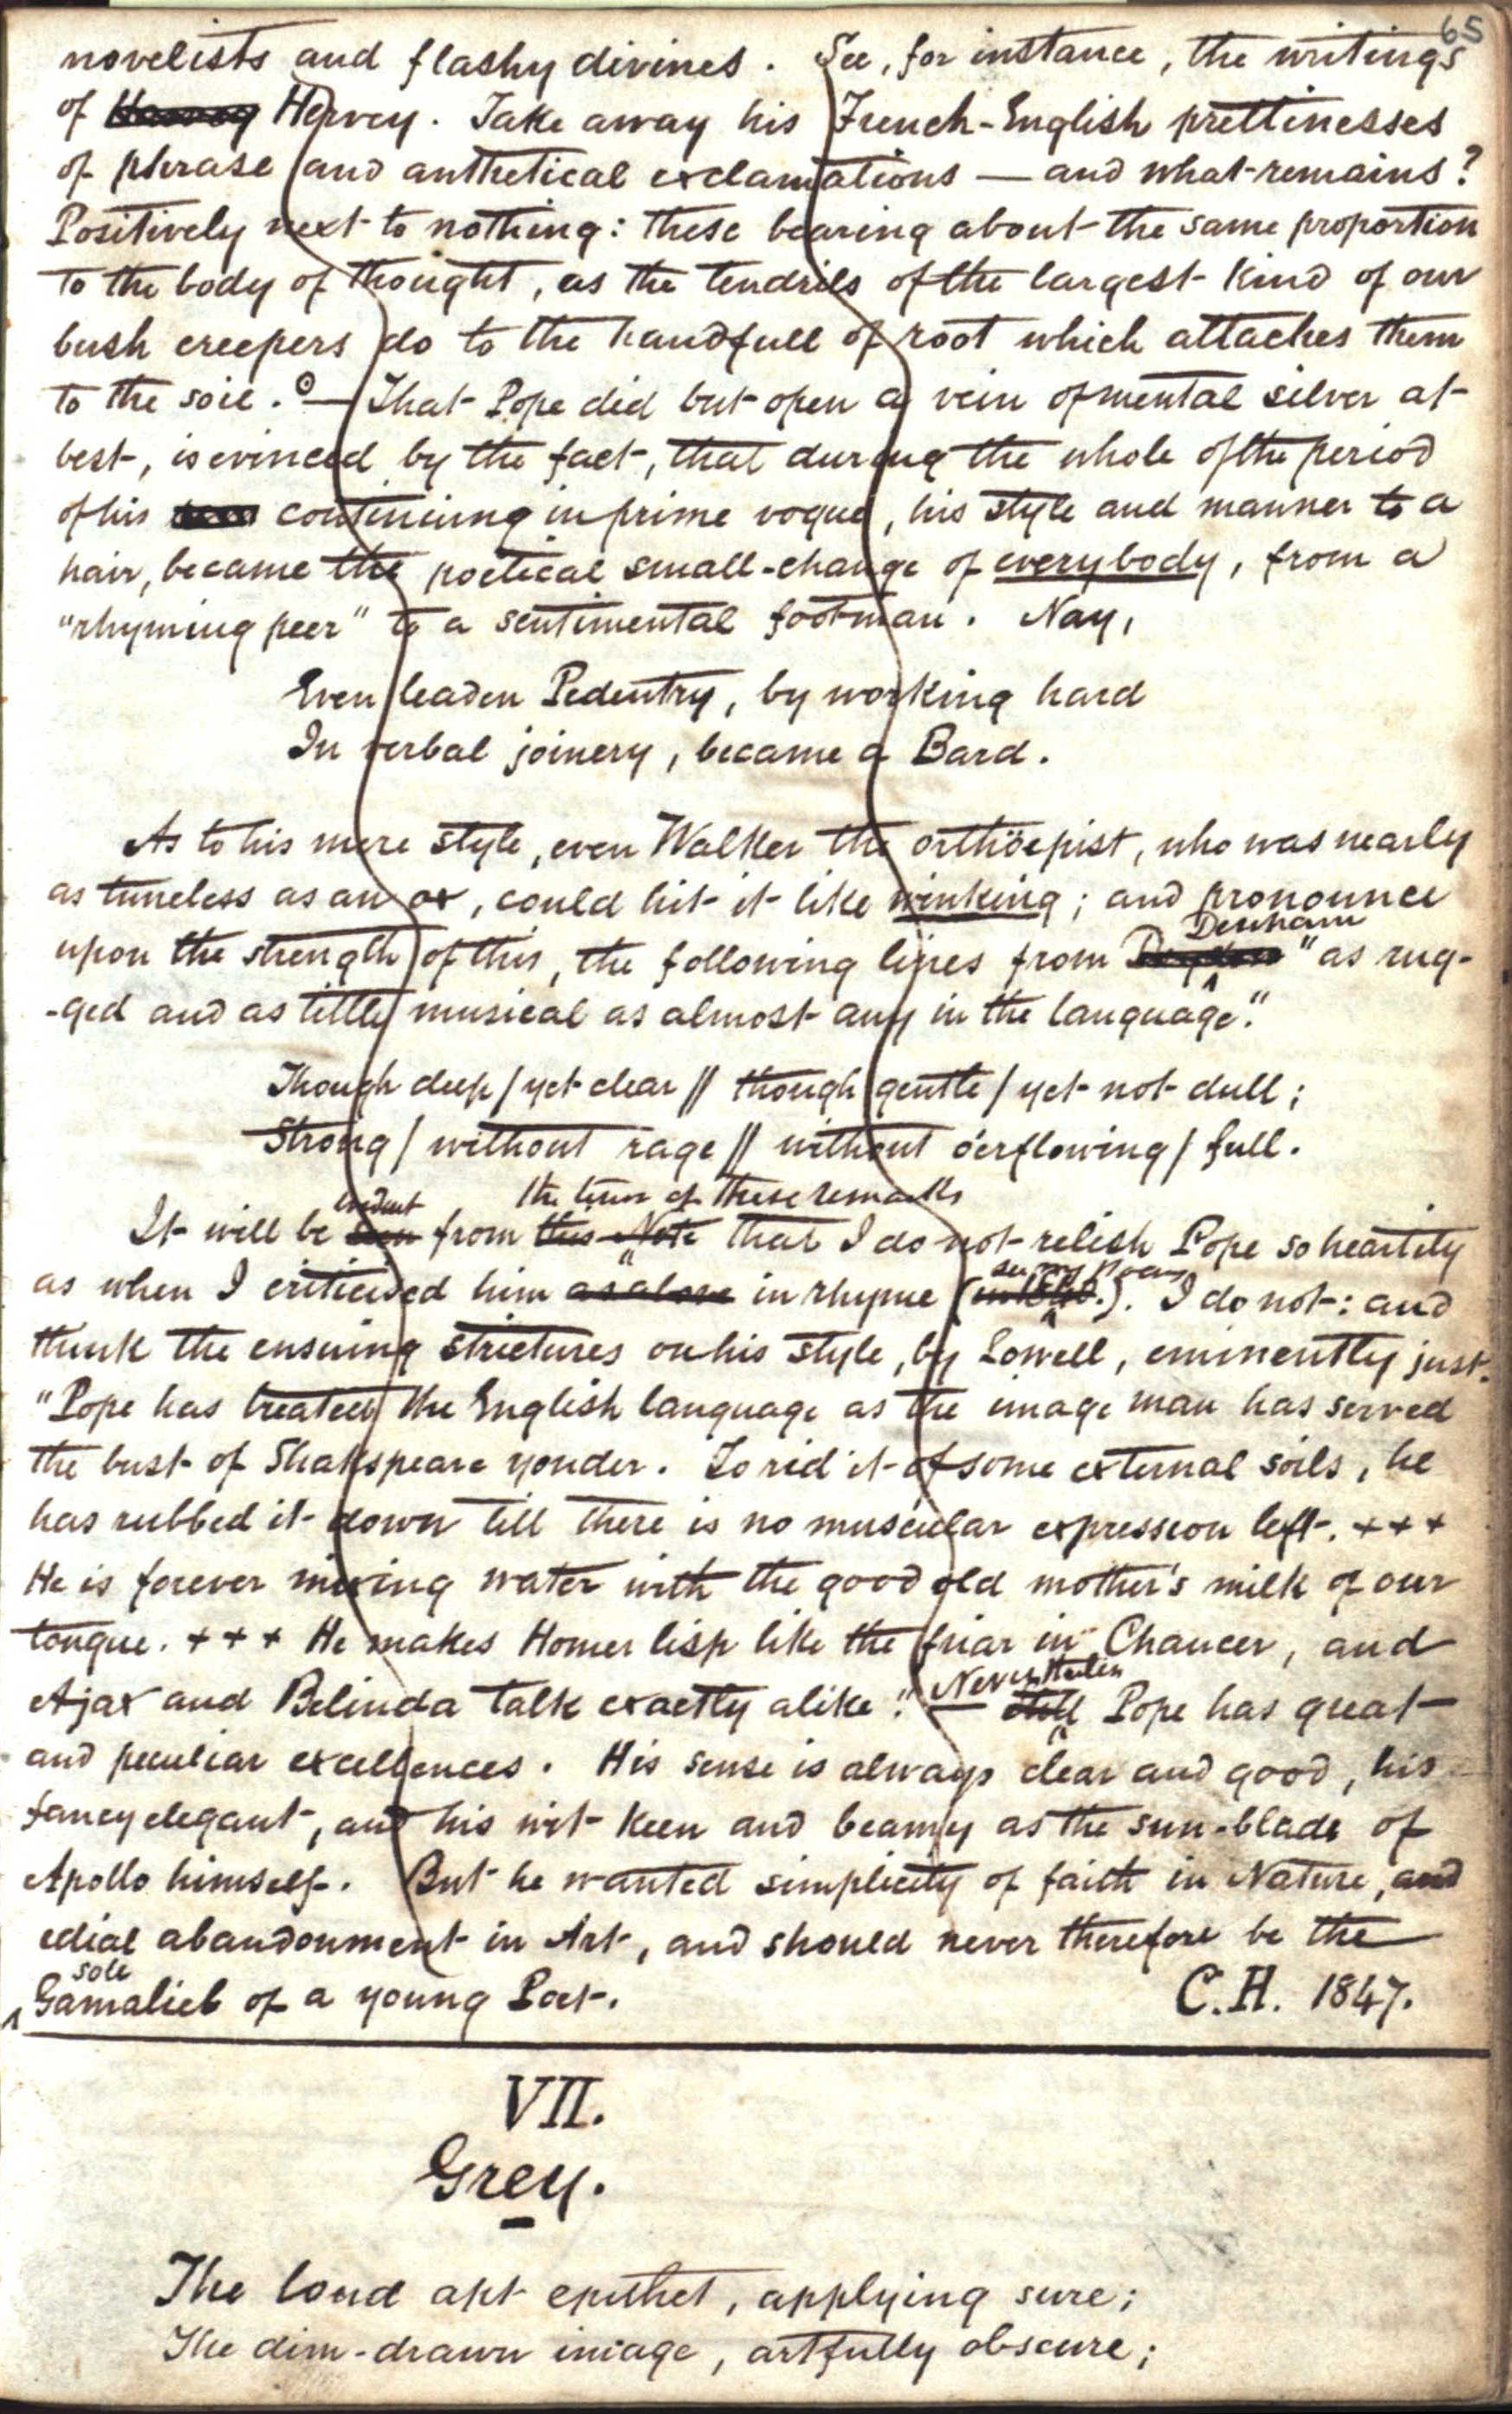 65
novelists and flashy divines. See, for instance, the writings
of Hervey. Take away his French-English prettinesses
of phrase and anthetical exclamations — and what remains?
Positively next to nothing: these bearing about the same proportion
to the body of thought, as the tendrils of the largest kind of our
bush creepers do to the handfull of root which attaches them
to the soil. — That Pope did but open a vein of mental silver at
best, is evinced by the fact, that during the whole of the period
of his continuing in prime vogue, his style and manner to a
hair, became the poetical small-change of everybody, from a
"rhyming peer" to a sentimental footman. Nay,
Even leaden Pedentry, by working hard
In verbal joinery, became a Bard.
As to his mere style, even Walker the orthöepist, who was nearly
as tuneless as an ox, could hit it like winking; and pronounce
Denham
upon the strength of this, the following lines from Dryden "as rug-
-ged and as little musical as almost any in the language."
Though deep / yet clear // though gentle / yet not dull;
Strong / without rage // without o'erflowing / full.
evident the tenor of these remarks
It will be seen from this Note that I do not relish Pope so heartily
see my Poem
as when I criticised him as alone in rhyme (in 1840.). I do not: and
think the ensuing strictures on his style, by Lowell, eminently just.
"Pope has treated the English language as the image man has served
the bust of Shakspeare yonder. To rid it of some external soils, he
has rubbed it down till there is no muscular expression left. + + +
He is forever mixing water with the good old mother's milk of our
tongue. + + + He makes Homer lisp like the friar in Chaucer, and
Nevertheless
Ajax and Belinda talk exactly alike." — still Pope has great
and peculiar excellences. His sense is always clear and good, his
fancy elegant, and his wit keen and beamy as the sun-blade of
Apollo himself. But he wanted simplicity of faith in Nature, and
edial abandonment in Art, and should never therefore be the
sole
Gamaliel of a young Poet. C.H. 1847.
VII.
Grey.
The loud apt epithet, applying sure;
The dim-drawn image, artfully obscure;